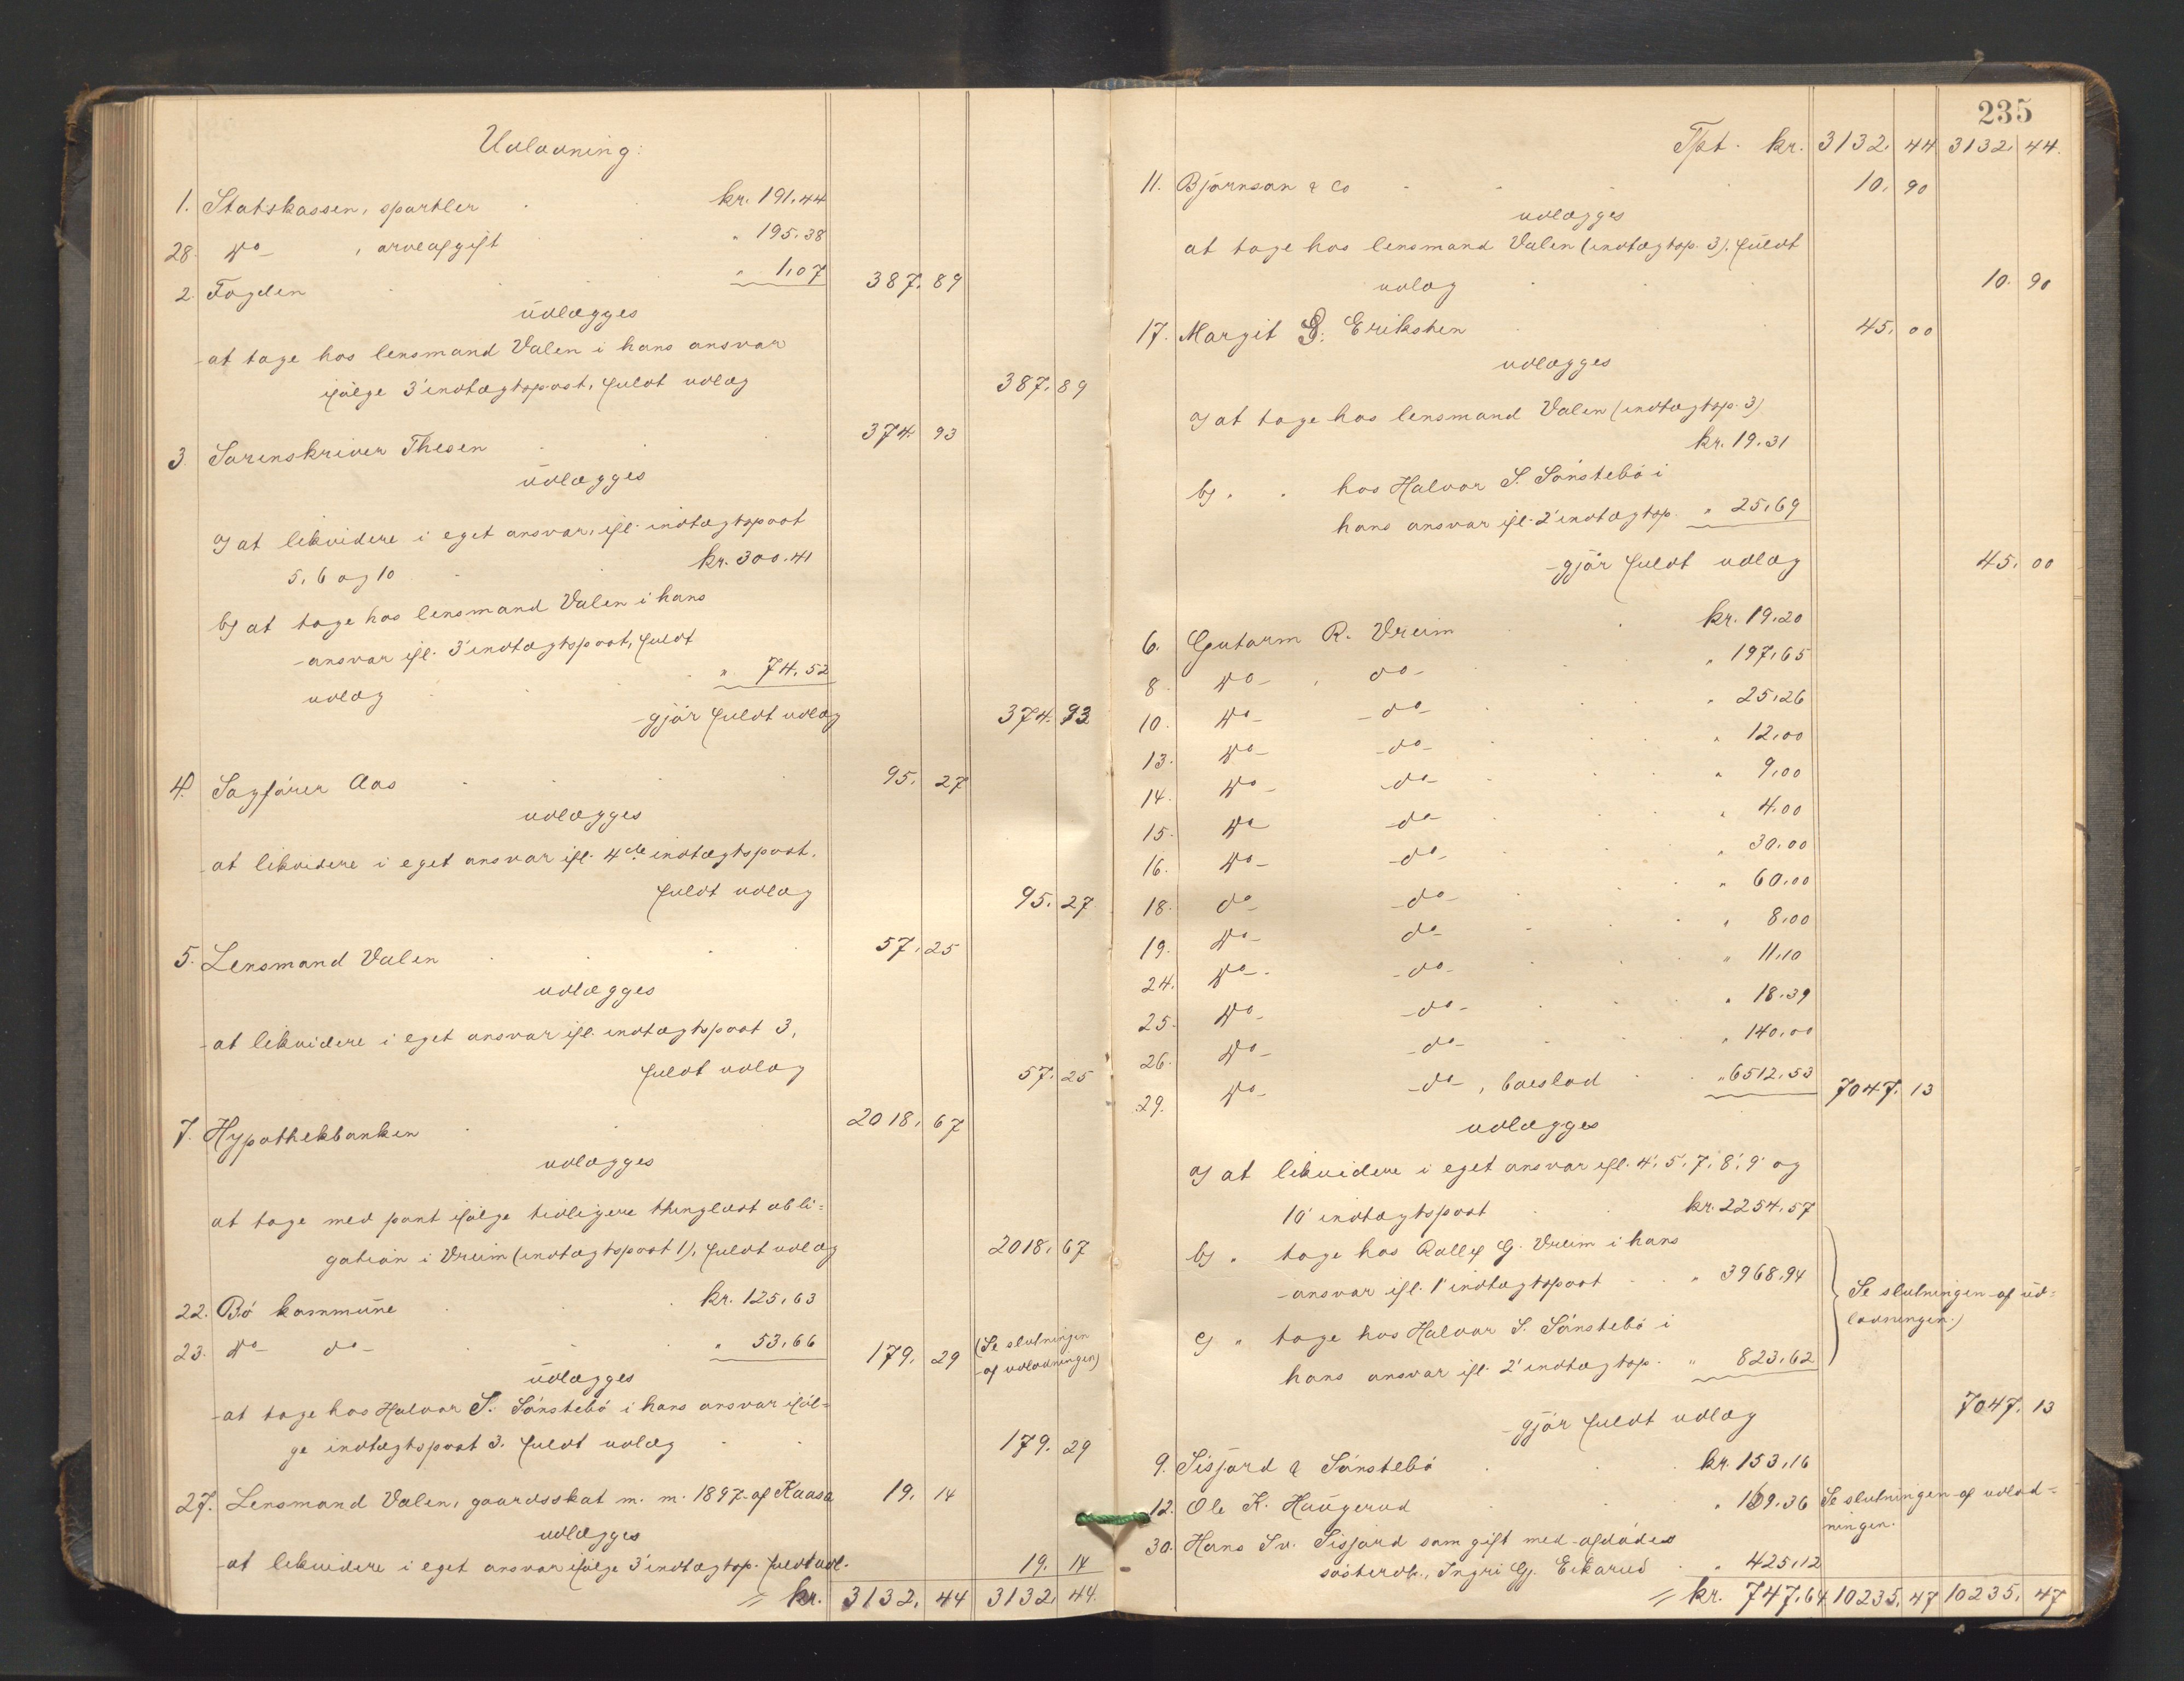 Udlodning:
1. Statskassen, sportler kr. 191.44
28. do , arveafgift " 195.38
2. Fogden " 1,07 387. 89
udlægges
at tage hos lensmand Valen i hans ansvar
ifölge 3' indtægtspost, fuldt udlæg 387. 89
3. Sorenskriver Thesen 374 93
udlægges
a) at likvidere i eget ansvar, ifl. indtægtspost
5, 6 og 10 kr. 300.41
b) at tage hos lensmand Valen i hans
ansvar ifl. 3' indtægtspost, fuldt
udlæg " 74.52
gjör fuldt udlæg 374. 93
4. Sagförer Aas 95. 27
udlægges
at likvidere i eget ansvar ifl. 4de indtægtspost.
fuldt udlæg 95. 27
5. Lensmand Valen 57. 25
udlægges
at likvidere i eget ansvar ifl. indtægtspost 3,
fuldt udlæg 57. 25
7. Hypothekbanken 2018, 67
udlægges
at tage med pant ifölge tidligere thinglæst obli=
gation i Vreim (indtægtspost 1), fuldt udlæg 2018, 67
22. Bö kommune kr. 125,63
23. do do " 53,66 179. 29 (Se slutningen
af udlodningen)
udlægges
at tage hos Halvor S. Sönstebö i hans ansvar iföl=
ge indtægtspost 3. fuldt udlæg 179. 29
27. Lensmand Valen, gaardsskat m. m. 1897 af Kaasa 19. 14
udlægges
at likvidere i eget ansvar ifölge 3' indtægtsp. fuldt udl. 19. 14
= kr. 3132, 44 3132, 44.
235
Tpt. kr. 3132, 44 3132, 44.
11. Björnson & Co 10. 90
udlægges
at tage hos lensmand Valen (indtægtsp. 3). fuldt
udlæg 10. 90
17. Margit G. Erikstein 45, 00
udlægges
a) at tage hos lensmand Valen (indtægtsp. 3)
kr. 19.31
b) " " hos Halvor S. Sönstebö i
hans ansvar ifl. 2' indtægtsp. " 25,69
gjör fuldt udlæg 45, 00
6. Gutorm R. Vreim kr. 19.20
8. do , do " 197,65
10. do do " 25,26
13. do do " 12,00
14. do do " 9,00
15. do do " 4.00
16. do do " 30.00
18. do do " 60,00
19. do do " 8,00
24. do do " 11,10
25. do do " 18.39
26. do do " 140,00
29. do do , boeslod " 6512,53 7047. 13
udlægges
a) at likvidere i eget ansvar ifl. 4', 5', 7', 8', 9' og
10' indtægtspost kr. 2254,57
b) " tage hos Rollef G. Vreim i hans
ansvar ifl. 1' indtægtspost " 3968,94
Se slutningen af ud=
lodningen.)
c) " tage hos Halvor S. Sönstebö i
hans ansvar ifl. 2' indtægtsp. " 823,62
gjör fuldt udlæg 7047, 13
9. Sisjord & Sönstebö kr. 153,16
12. Ole K. Haugerud " 169.36 Se slutningen af udlod=
ningen.
30. Hans Sv. Sisjord som gift med afdödes
sösterdtr., Ingri Gj. Eikarud " 425,12
= kr. 747,64 10235, 47 10235, 47